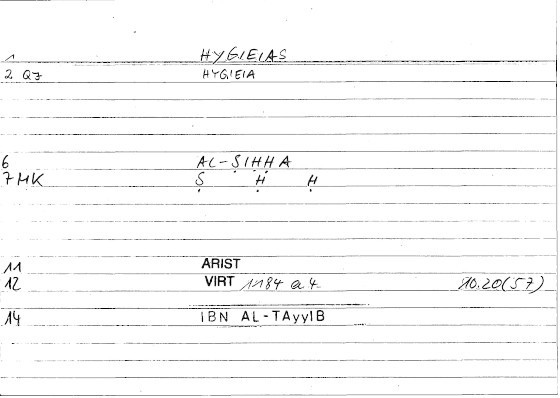 1 HYGIEIAS
2 QZ HYGIEIA
6 AL-ṢIḤḤA
7 MK Ṣ Ḥ Ḥ
11 ARIST
12 VIRT 1184 a 4 10.20(57)
14 IBN AL-TAyyIB